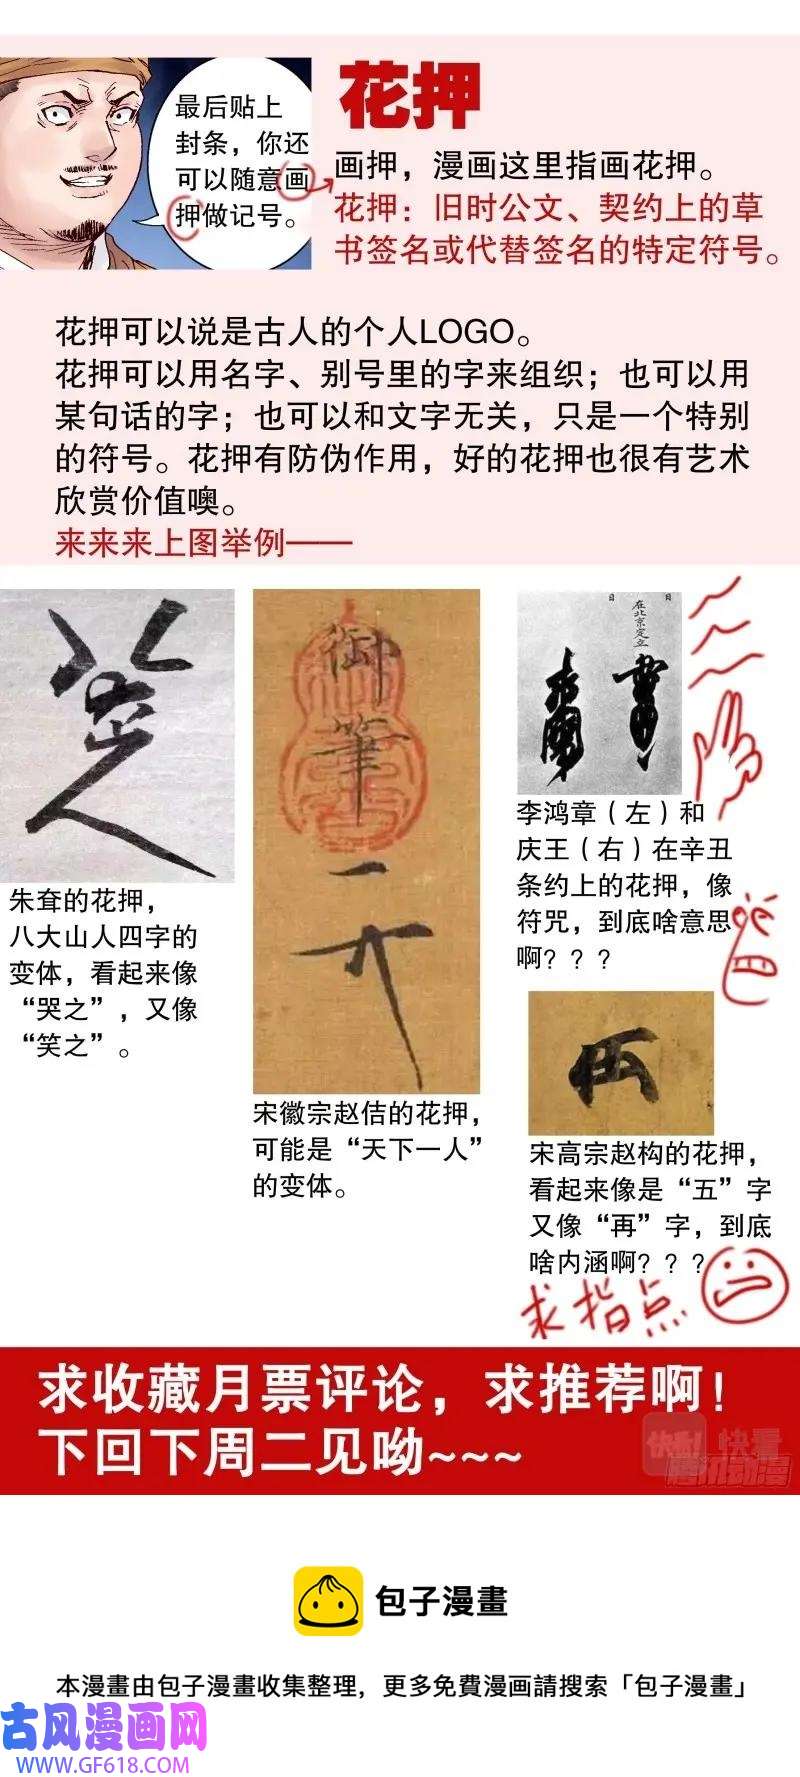 最后贴上
封条，你还
可以随意画
押做记号。
花押
画押，漫画这里指画花押。
花押：旧时公文、契约上的草
书签名或代替签名的特定符号。
花押可以说是古人的个人LOGO。
花押可以用名字、别号里的字来组织；也可以用
某句话的字；也可以和文字无关，只是一个特别
的符号。花押有防伪作用，好的花押也很有艺术
欣赏价值噢。
来来来上图举例——
御筆
在北京定立
朱耷的花押，
八大山人四字的
变体，看起来像
“哭之”，又像
“笑之”。
宋徽宗赵佶的花押，
可能是“天下一人”
的变体。
李鸿章（左）和
庆王（右）在辛丑
条约上的花押，像
符咒，到底啥意思
啊？？？
宋高宗赵构的花押，
看起来像是“五”字
又像“再”字，到底
啥内涵啊？？？
求指点
求收藏月票评论，求推荐啊！
下回下周二见呦~~~
快看!
快看
腾讯动漫
包子漫畫
本漫畫由包子漫畫收集整理，更多免費漫画請搜索「包子漫畫」
古风漫画网
WWW.GF618.COM